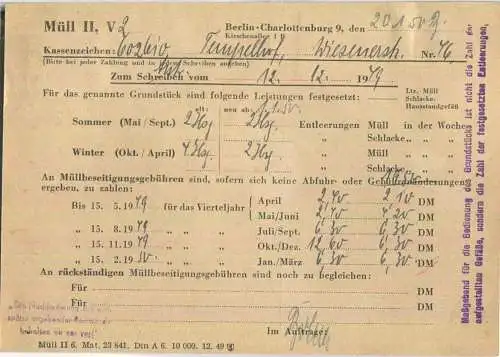 Müll II, V 2
Berlin-Charlottenburg 9, den 20.1.50
Kirschenallee 1 B
Kassenzeichen: 602610 Tempelhof, Wiesenerstr. Nr. 46
(Bitte bei jeder Zahlung und in Schreiben angeben)
Zum Schreiben vom 12. 12. 1949
Für das genannte Grundstück sind folgende Leistungen festgesetzt:
Ltr. Müll
Schlacke
Hausstandgefäß
alt: neu ab: 1.1.50.
Sommer (Mai / Sept.) Entleerungen Müll in der Woche
" Schlacke " " "
Winter (Okt. / April) " Müll " " "
" Schlacke " " "
An Müllbeseitigungsgebühren sind, sofern sich keine Abfuhr- oder Gebührenänderungen
ergeben, zu zahlen:
Bis 15. 5. 1949 für das Vierteljahr April 2,10 DM
Mai/Juni 4,20 DM
" 15. 8. 1949 " " Juli/Sept. 6,30 6,30 DM
" 15. 11. 1949 " " Okt./Dez. 12,60 6,30 DM
" 15. 2. 1950. " " Jan./März 6,30 6,30 DM
An rückständigen Müllbeseitigungsgebühren sind noch zu begleichen:
Für DM
Für DM
Im Auftrage:
Müll II 6. Mat. 23 841. Din A 6. 10 000. 12. 49
Maßgebend für die Bedienung des Grundstücks ist nicht die Zahl der
aufgestellten Gefäße, sondern die Zahl der festgesetzten Entleerungen.